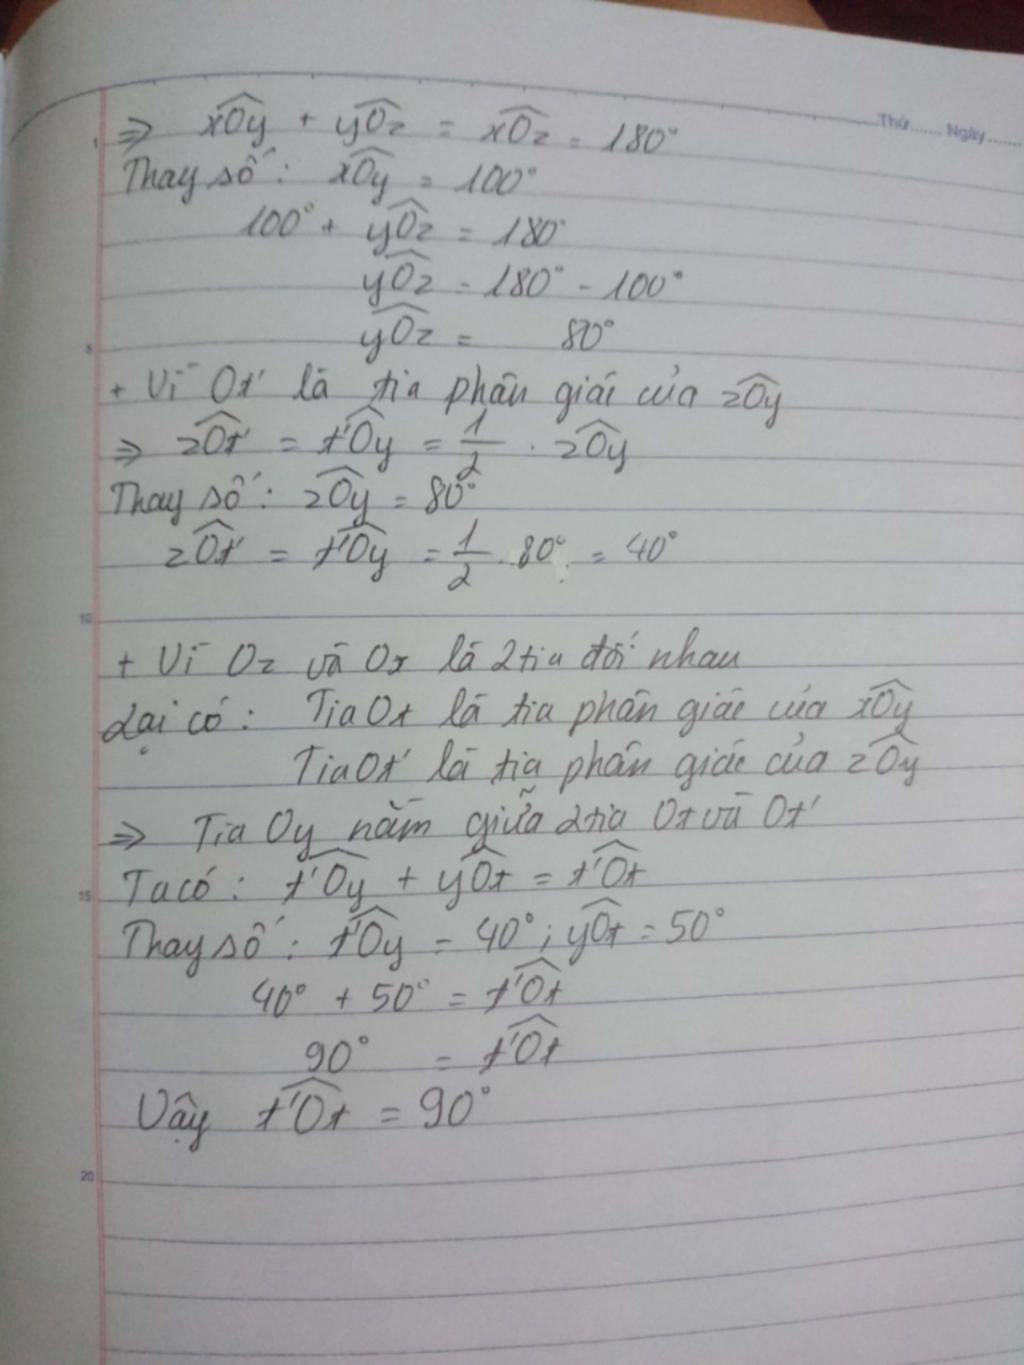 Thứ...... Ngày......
1
⇒ xÔy + yÔz = xÔz = 180°
Thay số: xÔy = 100°
100° + yÔz = 180°
yÔz = 180° - 100°
5
yÔz = 80°
+ Vì Ot' là tia phân giác của zÔy
⇒ zÔt' = t'Ôy = 1/2 . zÔy
Thay số: zÔy = 80°
zÔt' = t'Ôy = 1/2 . 80° = 40°
10
+ Vì Oz và Ox là 2 tia đối nhau
Lại có: Tia Ot là tia phân giác của xÔy
Tia Ot' là tia phân giác của zÔy
⇒ Tia Oy nằm giữa 2 tia Ot và Ot'
15
Ta có: t'Ôy + yÔt = t'Ôt
Thay số: t'Ôy = 40°; yÔt = 50°
40° + 50° = t'Ôt
90° = t'Ôt
Vậy t'Ôt = 90°
20